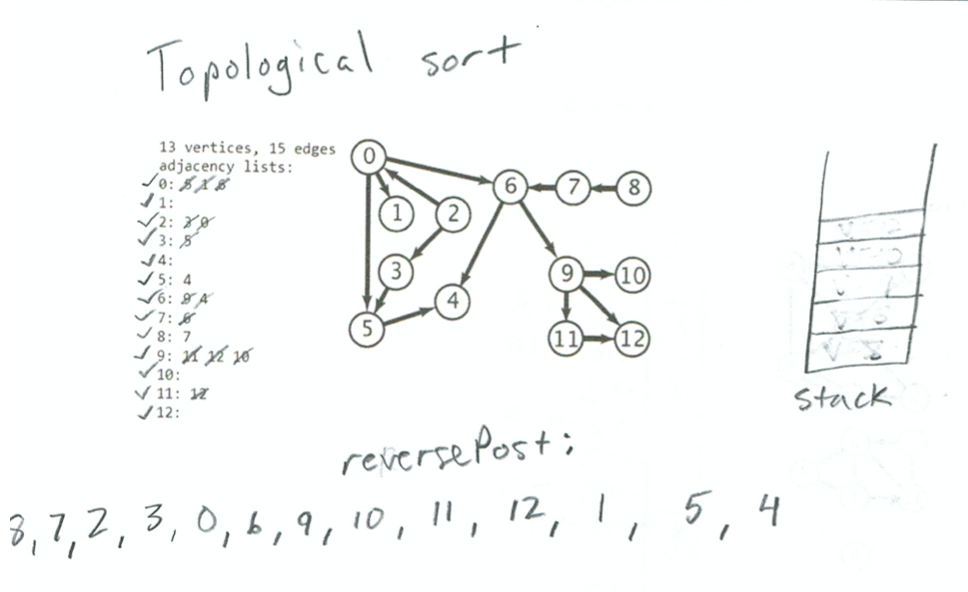 Topological sort
13 vertices, 15 edges
adjacency lists:
✓0: 5 1 6
✓1:
✓2: 3 0
✓3: 5
✓4:
✓5: 4
✓6: 9 4
✓7: 6
✓8: 7
✓9: 11 12 10
✓10:
✓11: 12
✓12:
0
6
7
8
1
2
3
9
10
4
5
11
12
stack
reversePost:
8, 7, 2, 3, 0, 6, 9, 10, 11, 12, 1, 5, 4